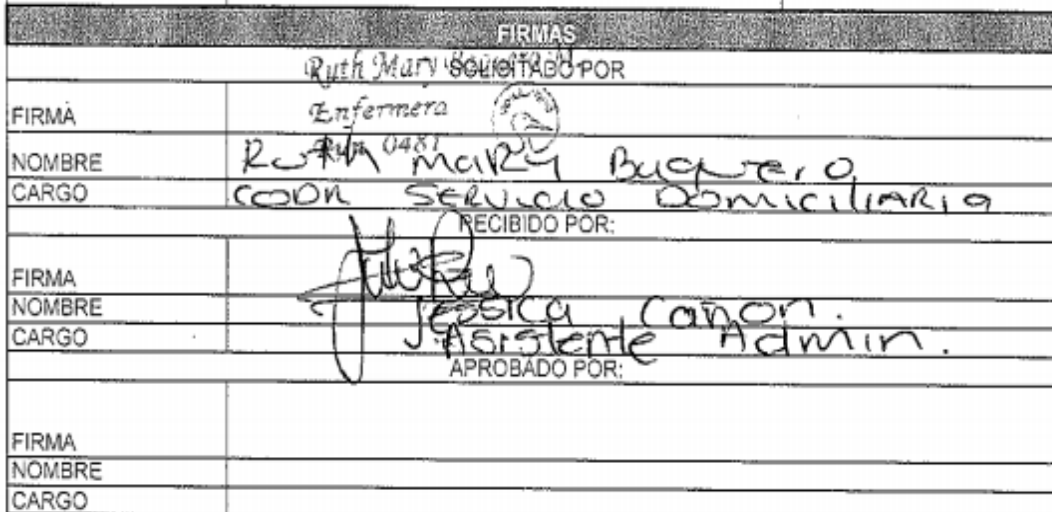 FIRMAS
Ruth Mary
SOLICITADO POR
FIRMA
Enfermera
0481
NOMBRE Ruth MaRy Baquero
CARGO COOR SERVICIO DOMICILIARIA
RECIBIDO POR:
FIRMA
NOMBRE Jessica Cañon.
CARGO Asistente Admin.
APROBADO POR:
FIRMA
NOMBRE
CARGO